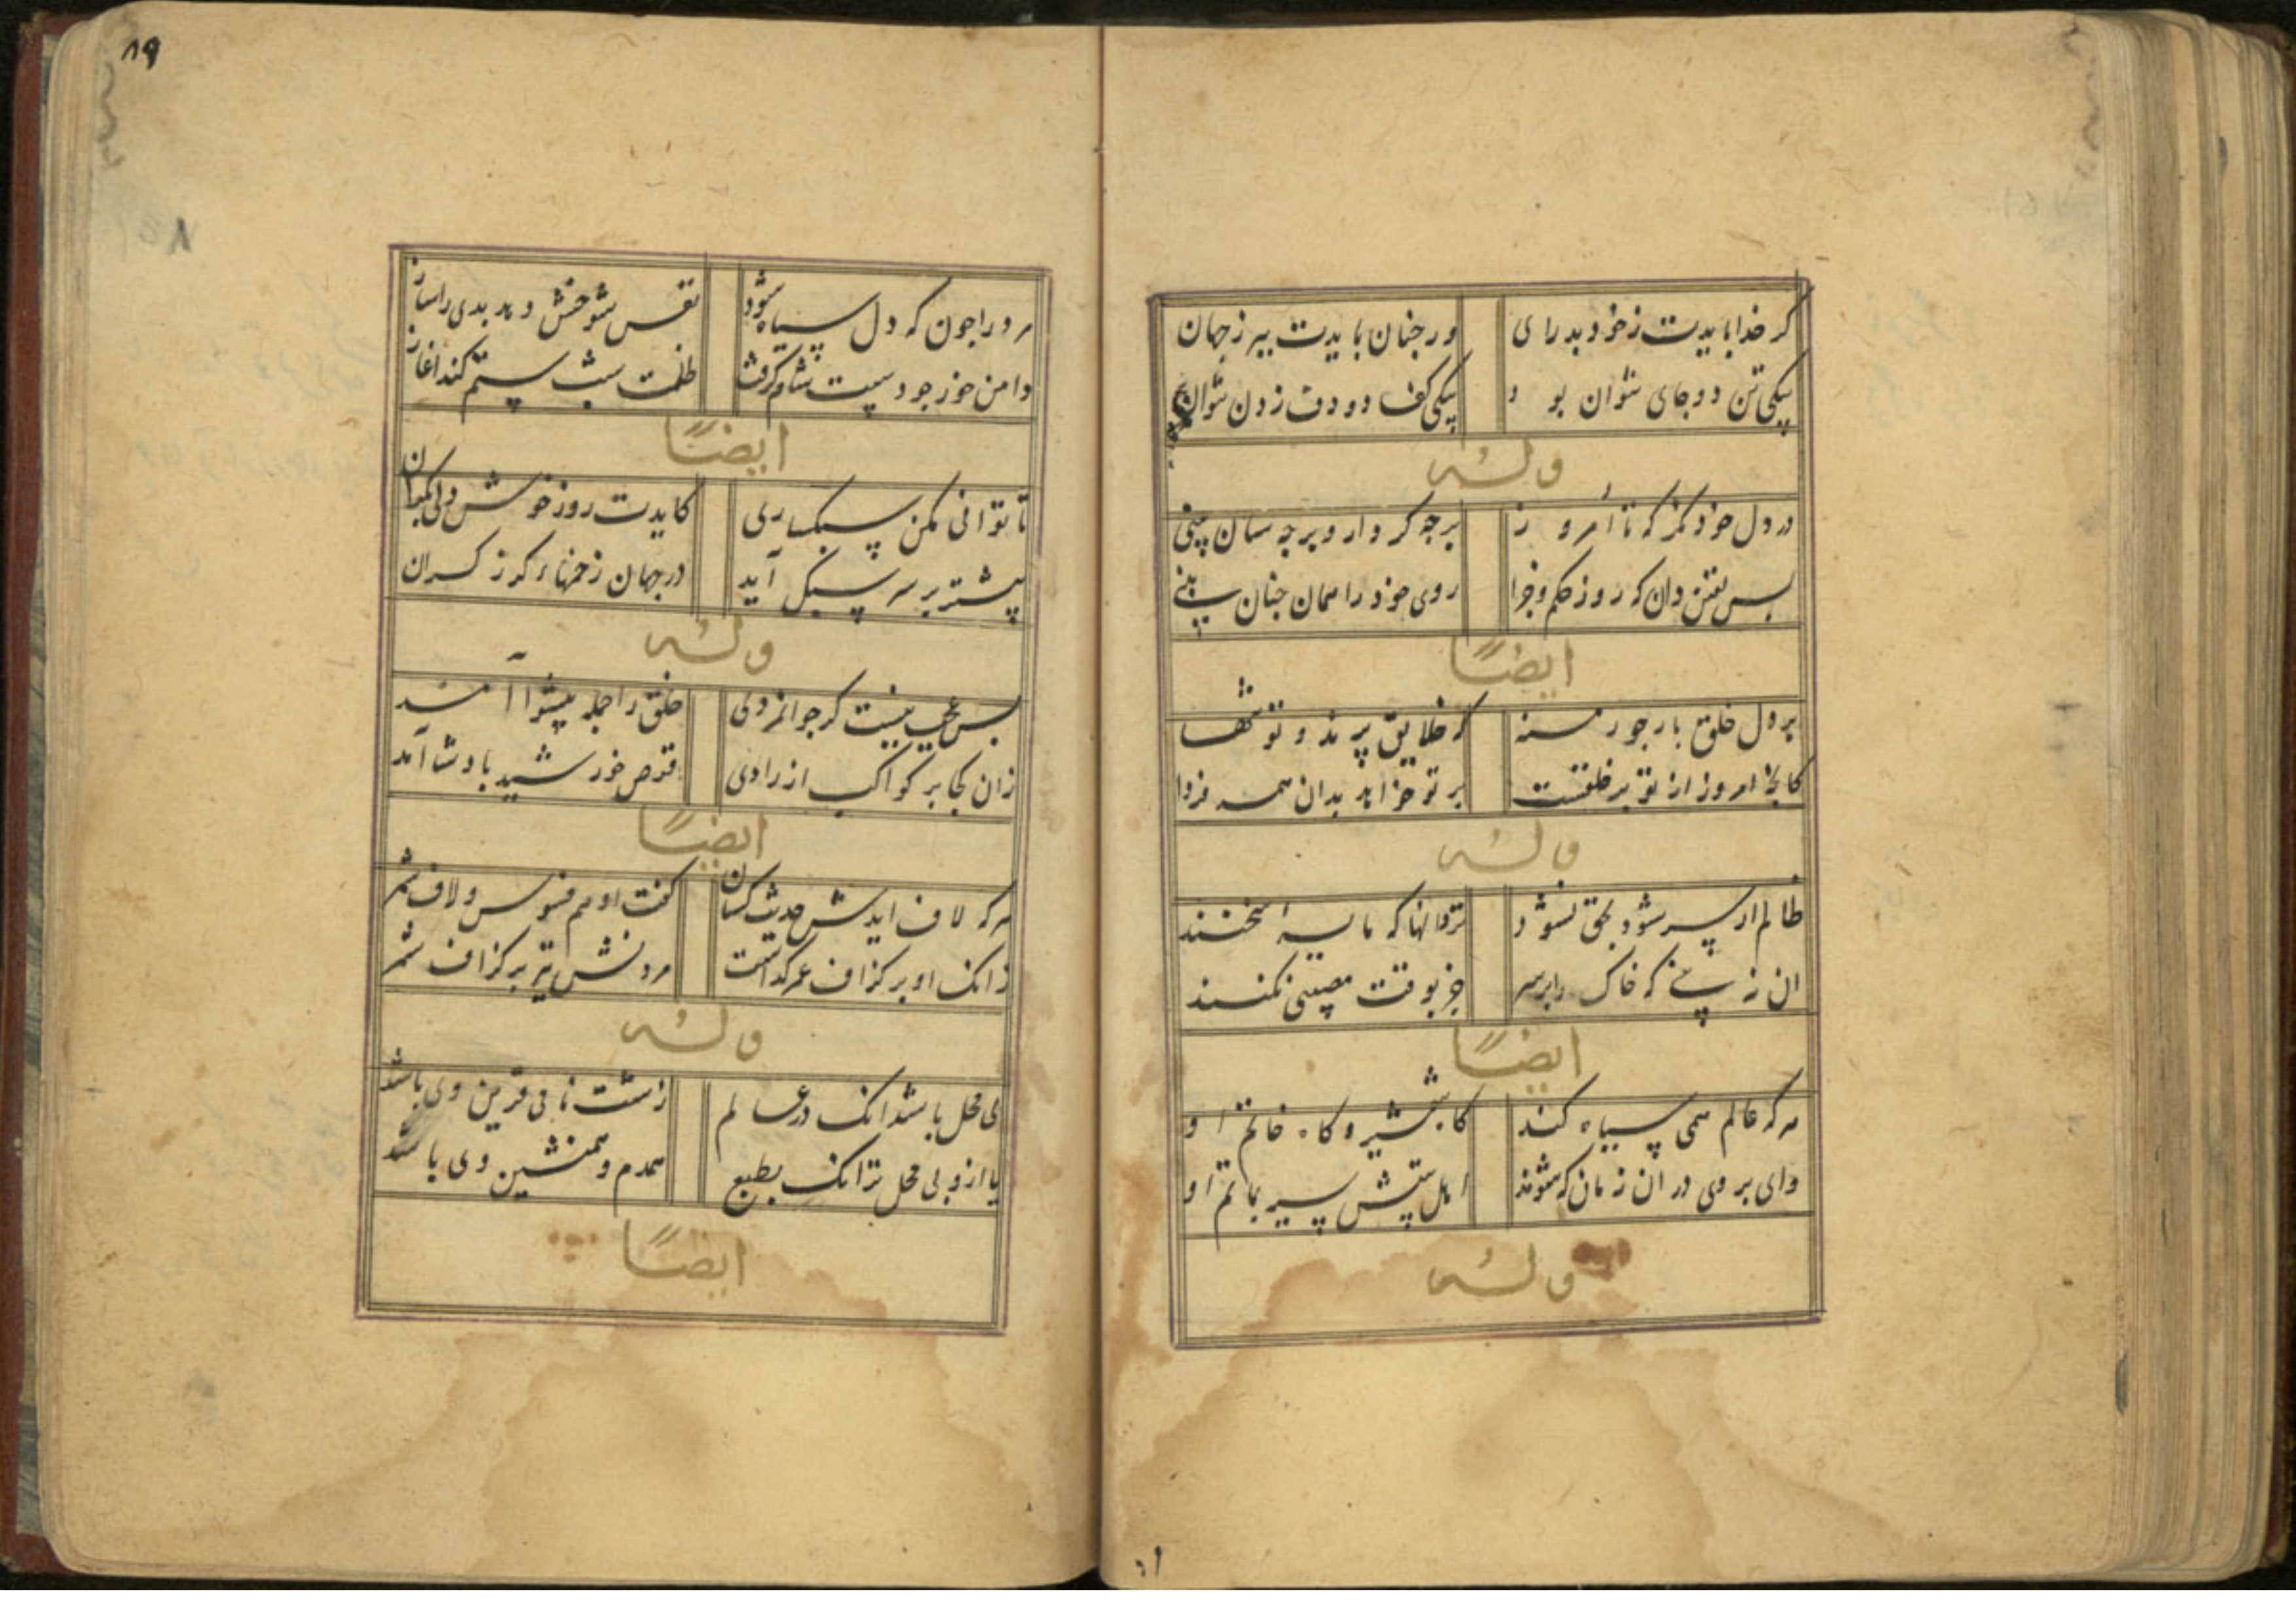 کر خدا بایدت ز خود بدرای ور جنان بایدت ببر ز جهان
بیکی تن دو جای نتوان بو د بیکی کف دو دف زدن نتوان
وله
در دل خود نکر که تا امرو ز برجه کردار و برجه سان بینی
بس یقین دان که روز حکم و جزا روی خود را همان جنان بینے
ایضاً
بر دل خلق بار جور منه کز خلایق پرند و تو تنها
کانج امروز از تو بر خلقست بر تو خواهد بدان همه فردا
وله
ظالم ار پیر شود بحق نشو د
ان نه بینے که خاک را بر سر جز بوقت مصیبتی نکنند
ایضاً
هر که عالم همی سیاه کند کاه شمشیر و کاه خاتم ا و
وای بر وی در ان زمان که شوند اهل بینش سیر بماتم ا و
وله
۸۹
مرد را جون که دل سیاه شود نفس شوخش دهد بدی را ساز
دامن خور جو دست شام کرفت ظلمت شب ستم کند اغاز
ایضاً
تا توانی مکن سبکساری کایدت روز خوش دلی بکران
بیشتر بر سر سبک آید در جهان زخمهاء کرز کران
وله
بس عجب نیست کر جوانمردی خلق را جمله پیشوا آمد
زان کجا بر کواکب از رادی قرص خورشید بادشا آمد
ایضاً
هر که لاف ایدش حدیث کسان کفت او هم فسوس و لاف شمر
زانک او بر کزاف عمر کذاشت مردنش نیز بر کزاف شمر
وله
بی محل باشد انک در عالم زشت نامی قرین وی باشد
یا ازو بی محل تر انک بطبع همدم و همنشین وی باشد
ایضاً